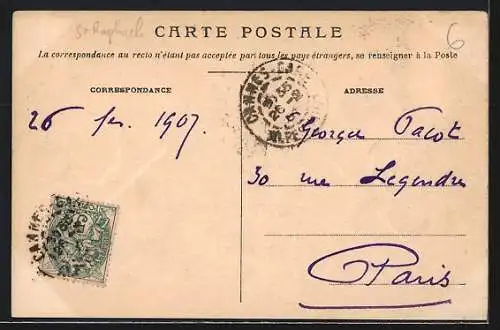 St Raphael
6
CARTE POSTALE
La correspondance au recto n'étant pas acceptée par tous les pays étrangers, se renseigner à la Poste
CORRESPONDANCE
ADRESSE
CANNES-GARE
26 fev. 1907.
Georges Pacot
30 rue Legendre
Paris
CANNES-GARE